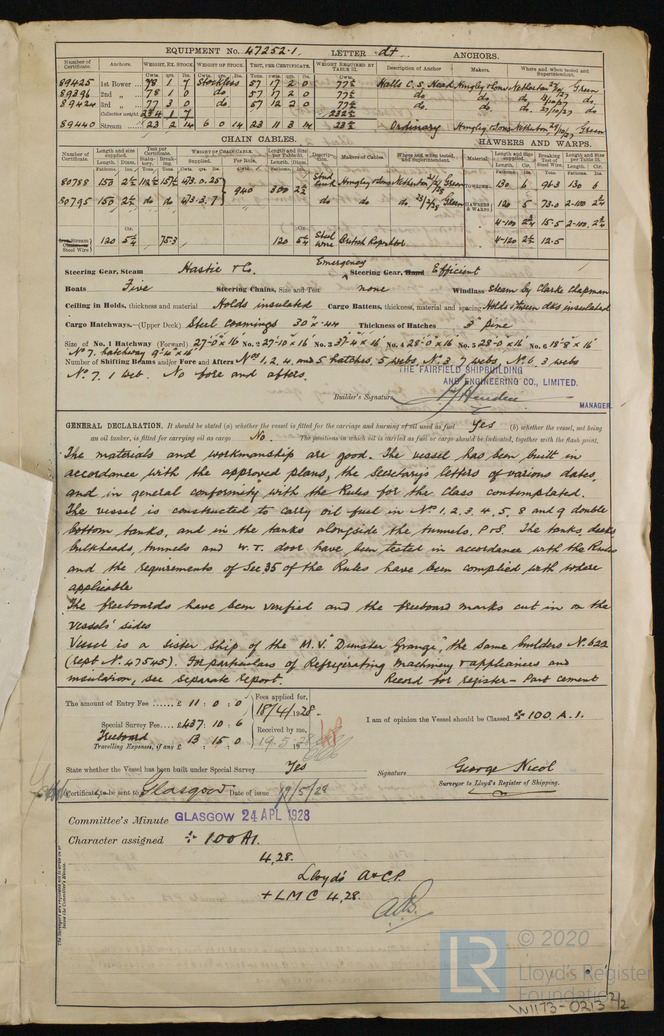 EQUIPMENT No. 47252.1. LETTER dt ANCHORS.
Number of Certificate. Anchors. WEIGHT, EX. STOCK. WEIGHT OF STOCK. TEST, PER CERTIFICATE. WEIGHT REQUIRED BY TABLE 31. Description of Anchor. Makers. Where and when tested and Superintendent.
Cwts. qrs. lbs. Cwts. qrs. lbs. Tons. cwts. qrs. lbs. Cwts.
89425 1st Bower 78 1 7 Stockless 57 17 2 0 77½ Halls C.S. Head Hingley & Sons Netherton Green
89396 2nd „ 78 1 0 do. 57 17 2 0 77½ do. do. do. do.
89424 3rd „ 77 3 0 do. 57 12 2 0 77½ do. do. do. 27/10/27 do.
Collective weight 234 1 7 232½
89440 Stream 23 2 14 6 0 14 23 11 3 14 23½ Ordinary Hingley & Sons Netherton Green
CHAIN CABLES. HAWSERS AND WARPS.
Number of Certificate. Length and size supplied. Test per Certificate. WEIGHT OF CHAIN CABLE. Length and Size per Table 31. Description. Makers of Cables. Where and when tested, and Superintendent. Material. Length and Size supplied. Breaking Test of Steel Wire. Length and Size per Table 31.
80788 150 473.0.25 940 300 Stud Link Hingley & Sons Netherton Green TOWLINE 130 6 96.3 130 6
80795 150 do do 473.3.7 do. do. do. Green HAWSERS & WARPS 120 5 73.0
15.5
Stream Steel Wire 120 5¼ 75.3 120 5¼ Steel wire British Ropes 12.5
Steering Gear, Steam Hastie & Co. Emergency Steering Gear, Hand Efficient
Boats Five Steering Chains, Size and Test none Windlass Steam by Clarke Chapman
Ceiling in Holds, thickness and material Holds insulated Cargo Battens, thickness, material and spacing Holds & 'tween dks insulated
Cargo Hatchways.—(Upper Deck) Steel coamings 30" x .44 Thickness of Hatches 3" pine
Size of No. 1 Hatchway (Forward) 27-0 x 16 No. 2 27-10 x 16 No. 3 37-4 x 16 No. 4 28-0 x 16 No. 5 28-0 x 16 No. 6 18-8 x 16
No. 7. hatchway 9-4 x 16
Number of Shifting Beams and/or Fore and Afters Nos 1, 2, 4, and 5 hatches, 5 webs, No. 3. 7 webs, No. 6. 3 webs
No. 7. 1 web. No fore and afters.
THE FAIRFIELD SHIPBUILDING
AND ENGINEERING CO., LIMITED.
Builder's Signature
MANAGER.
GENERAL DECLARATION. It should be stated (a) whether the vessel is fitted for the carriage and burning of oil used as fuel Yes (b) whether the vessel, not being
an oil tanker, is fitted for carrying oil as cargo No. The positions in which oil is carried as fuel or cargo should be indicated, together with the flash point.
The materials and workmanship are good. The vessel has been built in
accordance with the approved plans, the Secretary's letters of various dates,
and in general conformity with the Rules for the class contemplated.
The vessel is constructed to carry oil fuel in Nos 1, 2, 3, 4, 5, 8 and 9 double
bottom tanks, and in the tanks alongside the tunnels, P & S. The tanks, decks
bulkheads, tunnels and W.T. door have been tested in accordance with the Rules
and the requirements of Sec 35 of the Rules have been complied with where
applicable
The freeboards have been verified and the freeboard marks cut in on the
vessels' sides
Vessel is a sister ship of the M.V. "Dunster Grange", the same builders No. 622
(rept No. 47545). For particulars of Refrigerating Machinery & appliances and
insulation, see separate Report. Record for register - Part cement
The amount of Entry Fee ...... £ 11 : 0 : 0
Fees applied for, 18/4/1928.
Special Survey Fee.... £437 : 10 : 6
Received by me,
Freeboard 13 15 0
19.5.1928
Travelling Expenses, if any £
I am of opinion the Vessel should be Classed 100. A. 1.
State whether the Vessel has been built under Special Survey Yes
Signature George Nicol
Surveyor to Lloyd's Register of Shipping.
Certificate to be sent to Glasgow Date of issue 19/5/28
Committee's Minute GLASGOW 24 APL 1928
Character assigned 100 A1.
4,28.
Lloyd's A&CP.
+ LMC 4,28.
LR
© 2020
Lloyd's Register
Foundation
W1173-0213 2/2